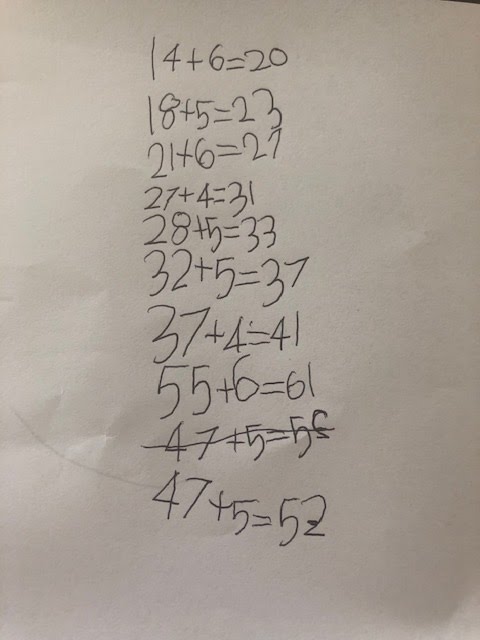 14+6=20
18+5=23
21+6=27
27+4=31
28+5=33
32+5=37
37+4=41
55+6=61
47+5=5
47+5=52